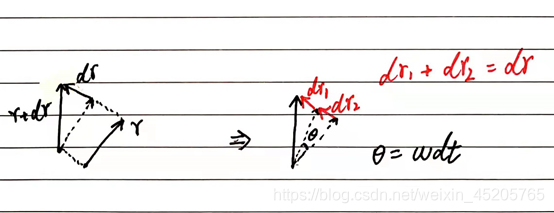 dr
r+dr
r
⇒
dr₁
dr₂
θ
dr₁ + dr₂ = dr
θ = wdt
https://blog.csdn.net/weixin_45205765